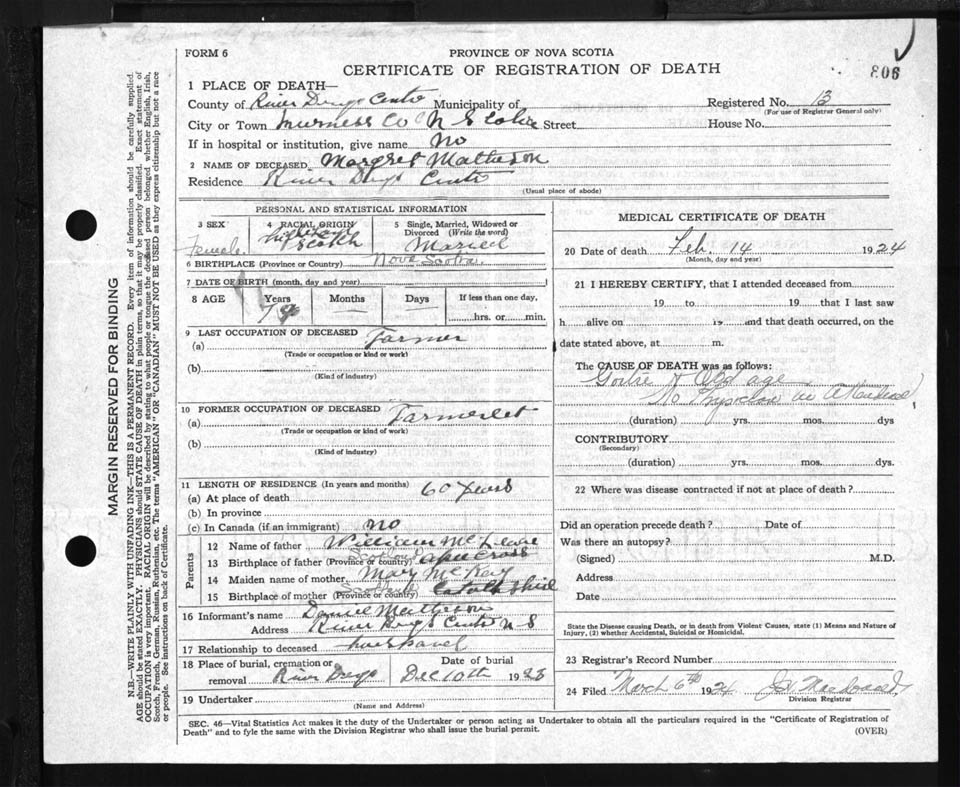 FORM 6
PROVINCE OF NOVA SCOTIA
CERTIFICATE OF REGISTRATION OF DEATH
806
1 PLACE OF DEATH—
County of River Denys Centre Municipality of
Registered No. 13
(For use of Registrar General only)
City or Town Inverness Co N S Street House No.
If in hospital or institution, give name No
2 NAME OF DECEASED Margret Matheson
Residence River Denys Centre
(Usual place of abode)
PERSONAL AND STATISTICAL INFORMATION
3 SEX
Female
4 RACIAL ORIGIN
Scotch
5 Single, Married, Widowed or Divorced (Write the word)
Maried
6 BIRTHPLACE (Province or Country) Nova Scotia
7 DATE OF BIRTH (month, day and year)
8 AGE Years Months Days If less than one day,
hrs. or min.
9 LAST OCCUPATION OF DECEASED
(a) Farmer
(Trade or occupation or kind or work)
(b)
(Kind of industry)
10 FORMER OCCUPATION OF DECEASED
(a)
(Trade or occupation or kind of work)
(b)
(Kind of industry)
11 LENGTH OF RESIDENCE (In years and months)
(a) At place of death 60 years
(b) In province
(c) In Canada (if an immigrant) no
Parents
12 Name of father William
13 Birthplace of father (Province or country) Scotland
14 Maiden name of mother Mary McKay
15 Birthplace of mother (Province or country) Scotland
16 Informant's name Daniel Matheson
Address River Denys Centre N S
17 Relationship to deceased husband
18 Place of burial, cremation or removal River Denys
Date of burial
Dec 10th 1923
19 Undertaker
(Name and Address)
MEDICAL CERTIFICATE OF DEATH
20 Date of death Feb. 14 1924
(Month, day and year)
21 I HEREBY CERTIFY, that I attended deceased from
19 to 19 that I last saw
h alive on 19 and that death occurred, on the
date stated above, at m.
The CAUSE OF DEATH was as follows:
Old age
No Physician in Attendence
(duration) yrs. mos. dys
CONTRIBUTORY
(Secondary)
(duration) yrs. mos. dys.
22 Where was disease contracted if not at place of death?
Did an operation precede death? Date of
Was there an autopsy?
(Signed) M.D.
Address
Date
State the Disease causing Death, or in death from Violent Causes, state (1) Means and Nature of
Injury, (2) whether Accidental, Suicidal or Homicidal.
23 Registrar's Record Number
24 Filed March 6th 1924
Division Registrar
SEC. 46—Vital Statistics Act makes it the duty of the Undertaker or person acting as Undertaker to obtain all the particulars required in the "Certificate of Registration of
Death" and to fyle the same with the Division Registrar who shall issue the burial permit.
(OVER)
MARGIN RESERVED FOR BINDING
N.B.—WRITE PLAINLY WITH UNFADING INK—THIS IS A PERMANENT RECORD. Every item of information should be carefully supplied.
AGE should be stated EXACTLY. PHYSICIANS should STATE CAUSE OF DEATH in plain terms, so that it may be properly classified. Exact statement of
OCCUPATION is very important. RACIAL ORIGIN will be described by stating to what people or tongue the deceased person belonged, whether English, Irish,
Scotch, French, German, Russian, Ruthenian, etc. The terms "AMERICAN" OR "CANADIAN" MUST NOT BE USED as they express citizenship but not a race
or people. See instructions on back of Certificate.